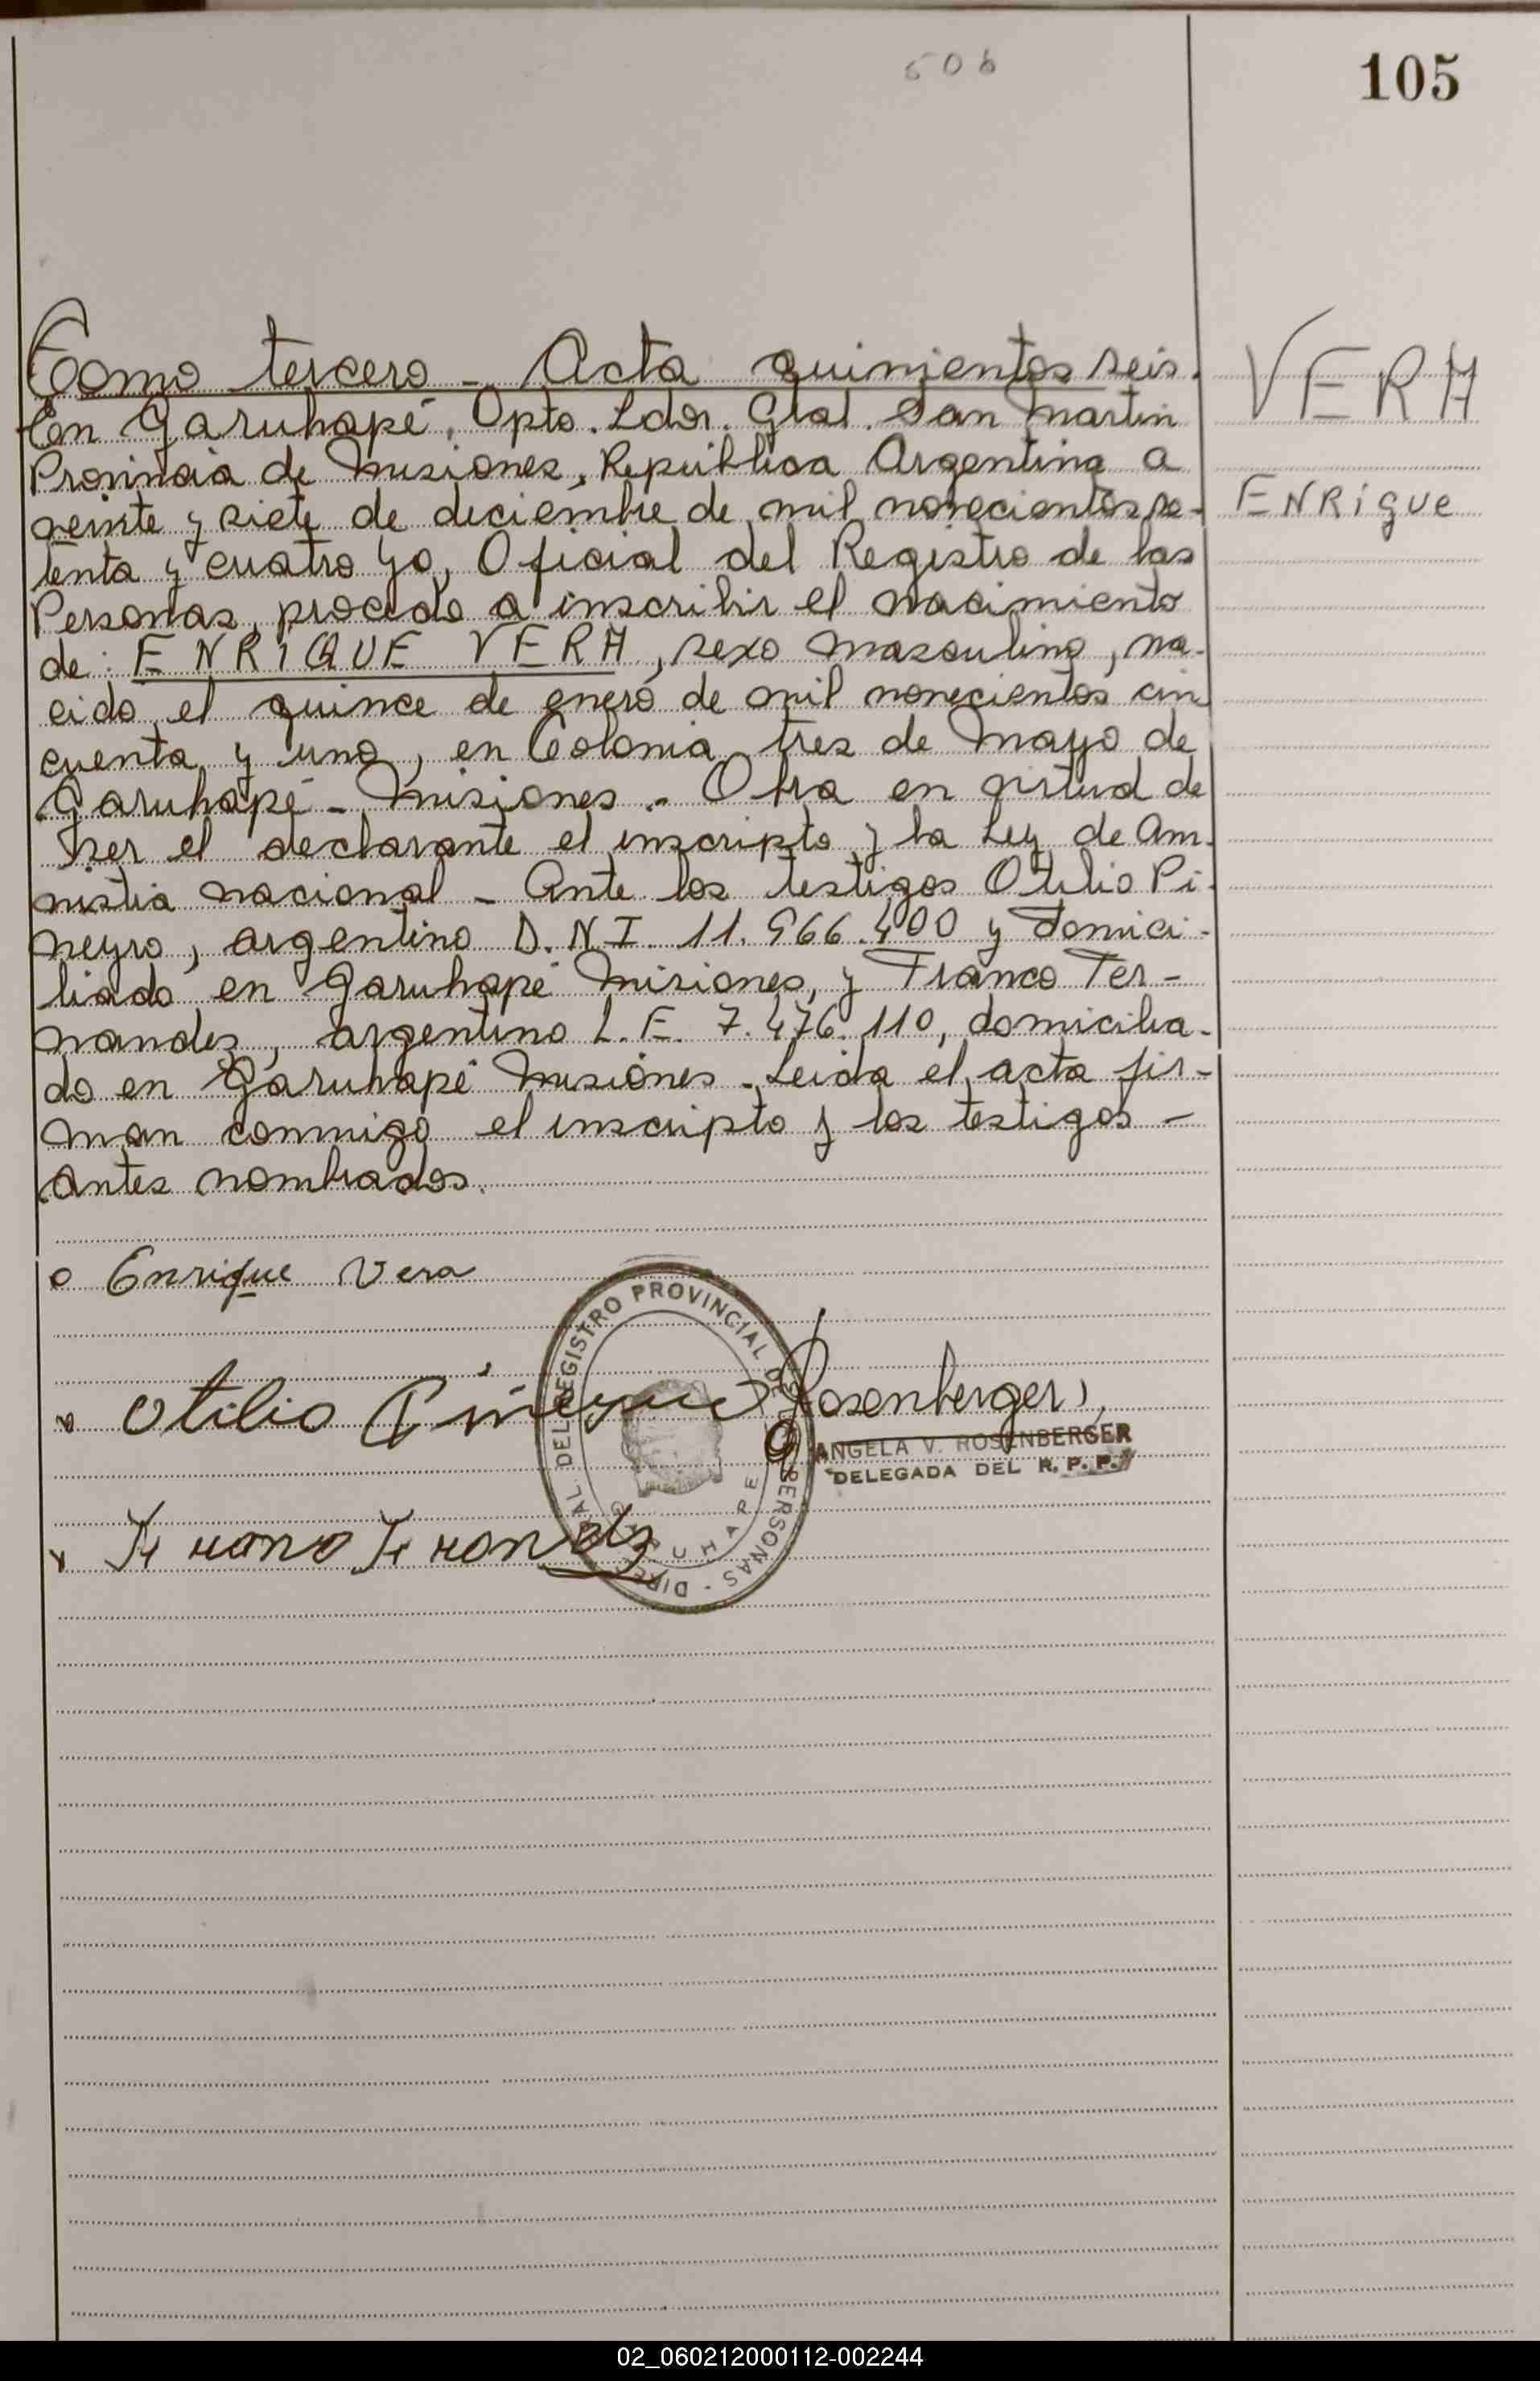 506
105
Tomo tercero - Acta quinientos seis.
En Garuhapé, Dpto. Ldor. Gral. San Martin
Provincia de Misiones, República Argentina a
veinte y siete de deciembre de mil novecientos se-
tenta y cuatro yo, Oficial del Registro de las
Personas, procedo a inscribir el nacimiento
de: ENRIQUE VERA, sexo masculino, na-
cido el quince de enero de mil novecientos cin
cuenta y uno, en Colonia tres de Mayo de
Garuhapé - Misiones. Obra en virtud de
ser el declarante el inscripto y la Ley de Am-
nistia nacional - Ante los testigos Otilio Pi-
neyro, argentino D.N.I. 11.966.400 y domici-
liado en Garuhapé Misiones, y Franco Fer-
nandez, argentino L.E. 7.476.110, domicilia-
do en Garuhapé Misiones. Leida el acta fir-
man conmigo el inscripto y los testigos -
antes nombrados.
VERA
ENRIQUE
Enrique Vera
Otilio Pineyro
Rosenberger
ANGELA V. ROSENBERGER
DELEGADA DEL R.P.P.
DEL REGISTRO PROVINCIAL DE LAS PERSONAS - DIRE
GARUHAPE